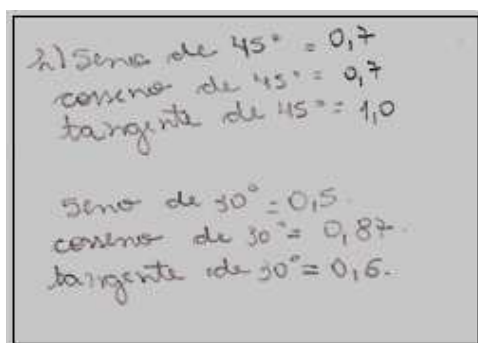 h) Seno de 45° = 0,7
cosseno de 45° = 0,7
tangente de 45° = 1,0
Seno de 30° = 0,5.
cosseno de 30° = 0,87.
tangente de 30° = 0,6.